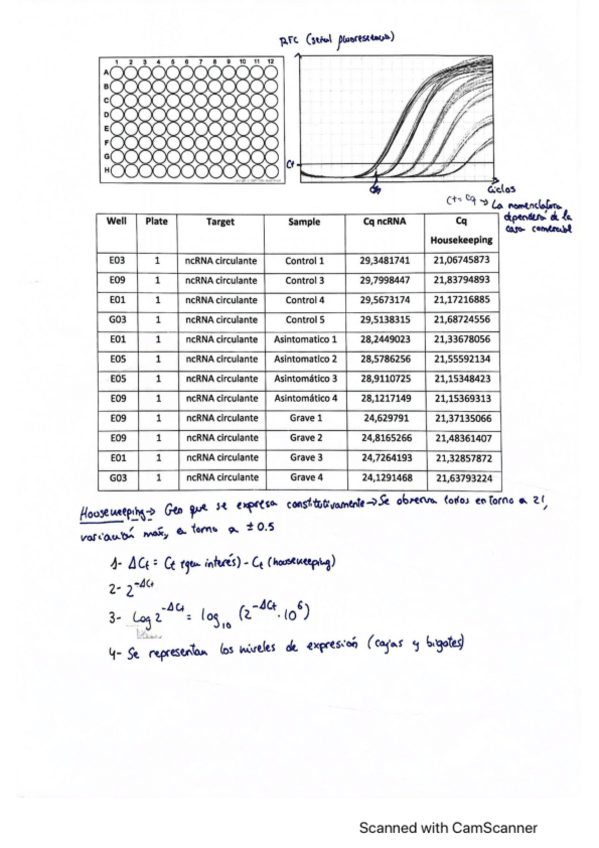 RFC (señal fluorescencia)
1 2 3 4 5 6 7 8 9 10 11 12
A
B
C
D
E
F
G
H
Ct
Cq
Ciclos
Ct = Cq → La nomenclatura
dependera de la
casa comercial
Well Plate Target Sample Cq ncRNA Cq Housekeeping
E03 1 ncRNA circulante Control 1 29,3481741 21,06745873
E09 1 ncRNA circulante Control 3 29,7998447 21,83794893
E01 1 ncRNA circulante Control 4 29,5673174 21,17216885
G03 1 ncRNA circulante Control 5 29,5138315 21,68724556
E01 1 ncRNA circulante Asintomatico 1 28,2449023 21,33678056
E05 1 ncRNA circulante Asintomatico 2 28,5786256 21,55592134
E05 1 ncRNA circulante Asintomático 3 28,9110725 21,15348423
E09 1 ncRNA circulante Asintomático 4 28,1217149 21,15369313
E09 1 ncRNA circulante Grave 1 24,629791 21,37135066
E09 1 ncRNA circulante Grave 2 24,8165266 21,48361407
E01 1 ncRNA circulante Grave 3 24,7264193 21,32857872
G03 1 ncRNA circulante Grave 4 24,1291468 21,63793224
Housekeeping → Gen que se expresa constitutivamente → Se observa todos en torno a 21,
variación máx, a torno a ± 0.5
1- ΔCt = Ct (gen interés) - Ct (housekeeping)
2- 2^-ΔCt
3- Log 2^-ΔCt = log10 (2^-ΔCt · 10^6)
4- Se representan los niveles de expresión (cajas y bigotes)
Scanned with CamScanner